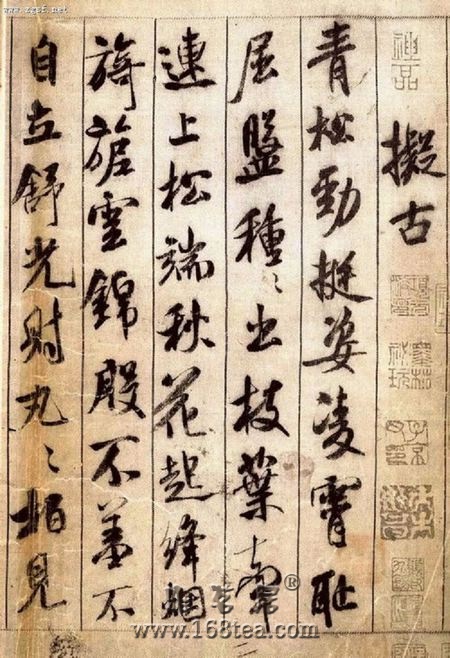 擬古
青松勁挺姿凌霄恥
屈盤種〻出枝葉牽
連上松端秋花起絳烟
旖旎雲錦殷不羞不
自立舒光射丸〻柏見
www.168tea.com